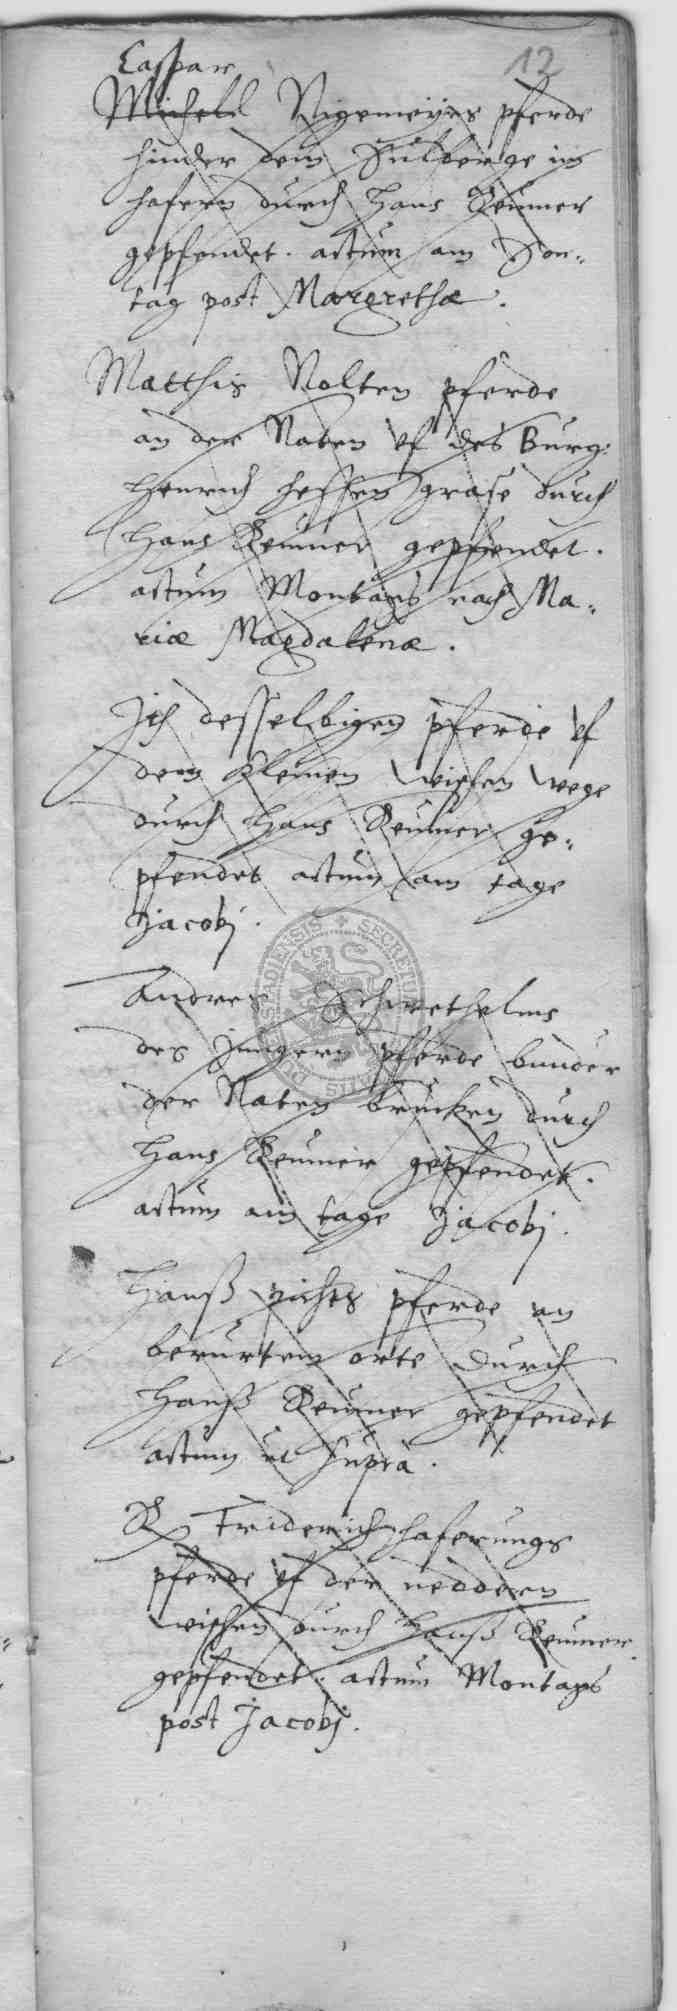 12
Caspar
Michell Nigemeyers pferde
hinder dem Sulberge im
hafern durch Hans Reumer
gepfendet. actum am Son-
tag post Margrethæ.
Matthis Nolten pferde
an der Naten vf des Burg:
Henrich hessen grase durch
Hans Reumer gepfendet.
actum Montags nach Ma-
riæ Magdalenæ.
Ich desselbigen pferde vf
dem kleinen wischen wege
durch Hans Reumer ge-
pfendet actum am tage
Jacobj.
Andres Schwethelms
des jungern pferde bunder
der Naten brucken durch
Hans Reumer gepfendet.
actum am tage Jacobj.
Hanß pferde an
berurtem orte durch
Hanß Reumer gepfendet
actum ut supra.
Friderich haferungs
pferde vf der neddern
wischen durch Hanß Reumer
gepfendet. actum Montags
post Jacobj.